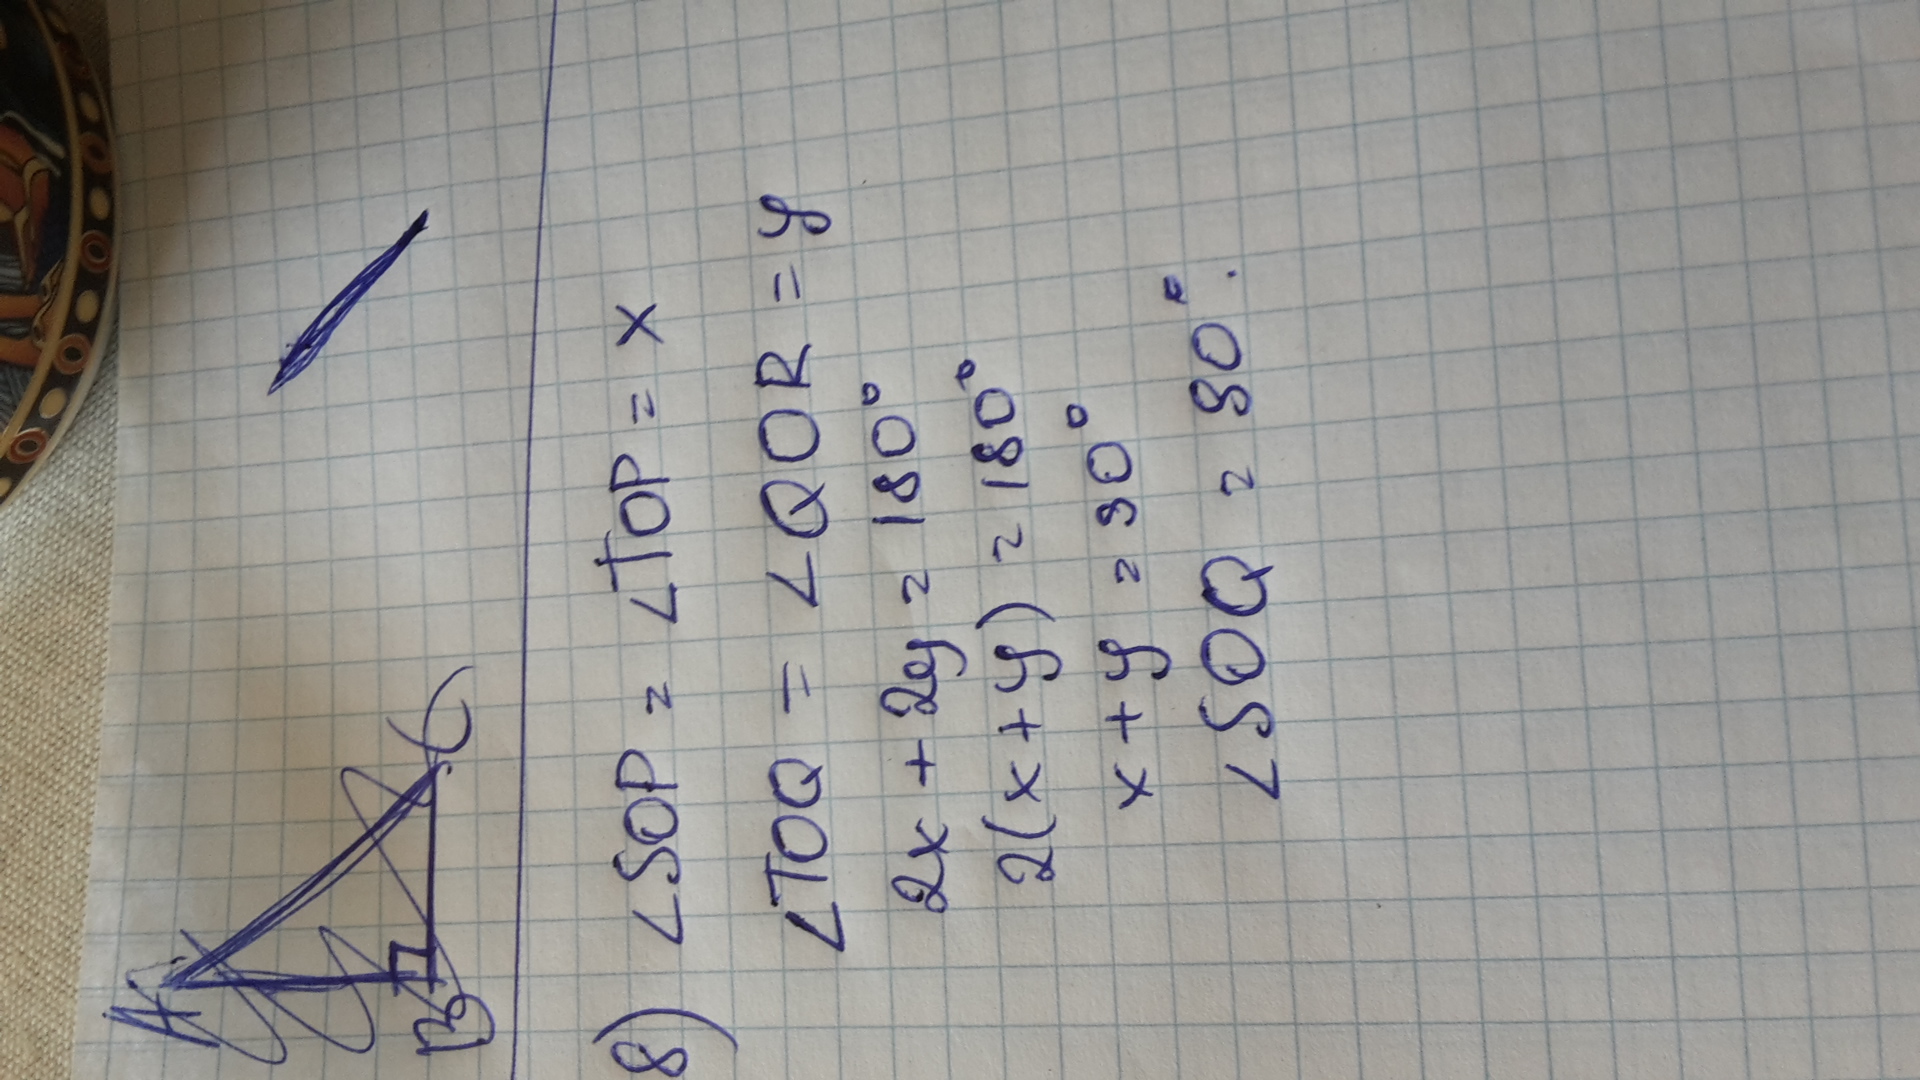 A
B
C
8) ∠SOP = ∠TOP = x
∠TOQ = ∠QOR = y
2x + 2y = 180°
2(x + y) = 180°
x + y = 90°
∠SOQ = 90°.